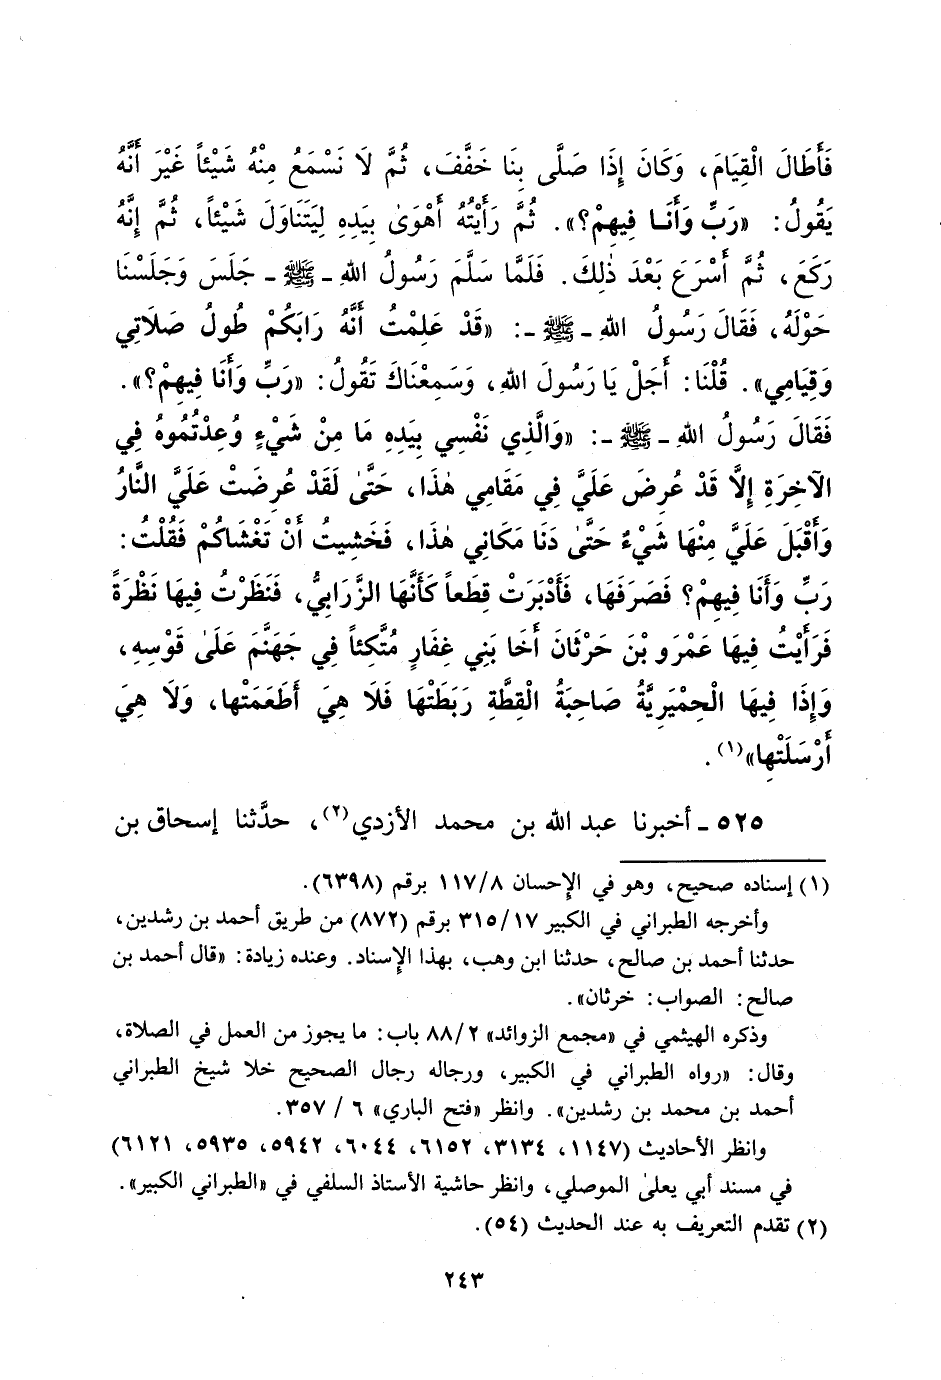 فَأَطَالَ الْقِيَامَ، وَكَانَ إِذَا صَلَّى بِنَا خَفَّفَ، ثُمَّ لَا نَسْمَعُ مِنْهُ شَيْئاً غَيْرَ أَنَّهُ
يَقُولُ: «رَبِّ وَأَنَا فِيهِمْ؟». ثُمَّ رَأَيْتُهُ أَهْوَىٰ بِيَدِهِ لِيَتَنَاوَلَ شَيْئاً، ثُمَّ إِنَّهُ
رَكَعَ، ثُمَّ أَسْرَعَ بَعْدَ ذٰلِكَ. فَلَمَّا سَلَّمَ رَسُولُ اللهِ - ﷺ - جَلَسَ وَجَلَسْنَا
حَوْلَهُ، فَقَالَ رَسُولُ اللهِ - ﷺ -: «قَدْ عَلِمْتُ أَنَّهُ رَابَكُمْ طُولُ صَلَاتِي
وَقِيَامِي». قُلْنَا: أَجَلْ يَا رَسُولَ اللهِ، وَسَمِعْنَاكَ تَقُولُ: «رَبِّ وَأَنَا فِيهِمْ؟».
فَقَالَ رَسُولُ اللهِ - ﷺ -: «وَالَّذِي نَفْسِي بِيَدِهِ مَا مِنْ شَيْءٍ وُعِدْتُمُوهُ فِي
الآخِرَةِ إِلَّا قَدْ عُرِضَ عَلَيَّ فِي مَقَامِي هٰذَا، حَتَّىٰ لَقَدْ عُرِضَتْ عَلَيَّ النَّارُ
وَأَقْبَلَ عَلَيَّ مِنْهَا شَيْءٌ حَتَّىٰ دَنَا مَكَانِي هٰذَا، فَخَشِيتُ أَنْ تَغْشَاكُمْ فَقُلْتُ:
رَبِّ وَأَنَا فِيهِمْ؟ فَصَرَفَهَا، فَأَدْبَرَتْ قِطَعاً كَأَنَّهَا الزَّرَابِيُّ، فَنَظَرْتُ فِيهَا نَظْرَةً
فَرَأَيْتُ فِيهَا عَمْرَو بْنَ حَرْثَانَ أَخَا بَنِي غِفَارٍ مُتَّكِئاً فِي جَهَنَّمَ عَلَىٰ قَوْسِهِ،
وَإِذَا فِيهَا الْحِمْيَرِيَّةُ صَاحِبَةُ الْقِطَّةِ رَبَطَتْهَا فَلَا هِيَ أَطْعَمَتْها، وَلَا هِيَ
أَرْسَلَتْهِا»(١).
٥٢٥ - أخبرنا عبد الله بن محمد الأزدي(٢)، حدَّثنا إسحاق بن
(١) إسناده صحيح، وهو في الإحسان ١١٧/٨ برقم (٦٣٩٨).
وأخرجه الطبراني في الكبير ٣١٥/١٧ برقم (٨٧٢) من طريق أحمد بن رشدين،
حدثنا أحمد بن صالح، حدثنا ابن وهب، بهذا الإسناد. وعنده زيادة: «قال أحمد بن
صالح: الصواب: خرثان».
وذكره الهيثمي في «مجمع الزوائد» ٨٨/٢ باب: ما يجوز من العمل في الصلاة،
وقال: «رواه الطبراني في الكبير، ورجاله رجال الصحيح خلا شيخ الطبراني
أحمد بن محمد بن رشدين». وانظر «فتح الباري» ٦ / ٣٥٧.
وانظر الأحاديث (١١٤٧، ٣١٣٤، ٦١٥٢، ٦٠٤٤، ٥٩٤٢، ٥٩٣٥، ٦١٢١)
في مسند أبي يعلىٰ الموصلي، وانظر حاشية الأستاذ السلفي في «الطبراني الكبير».
(٢) تقدم التعريف به عند الحديث (٥٤).
٢٤٣